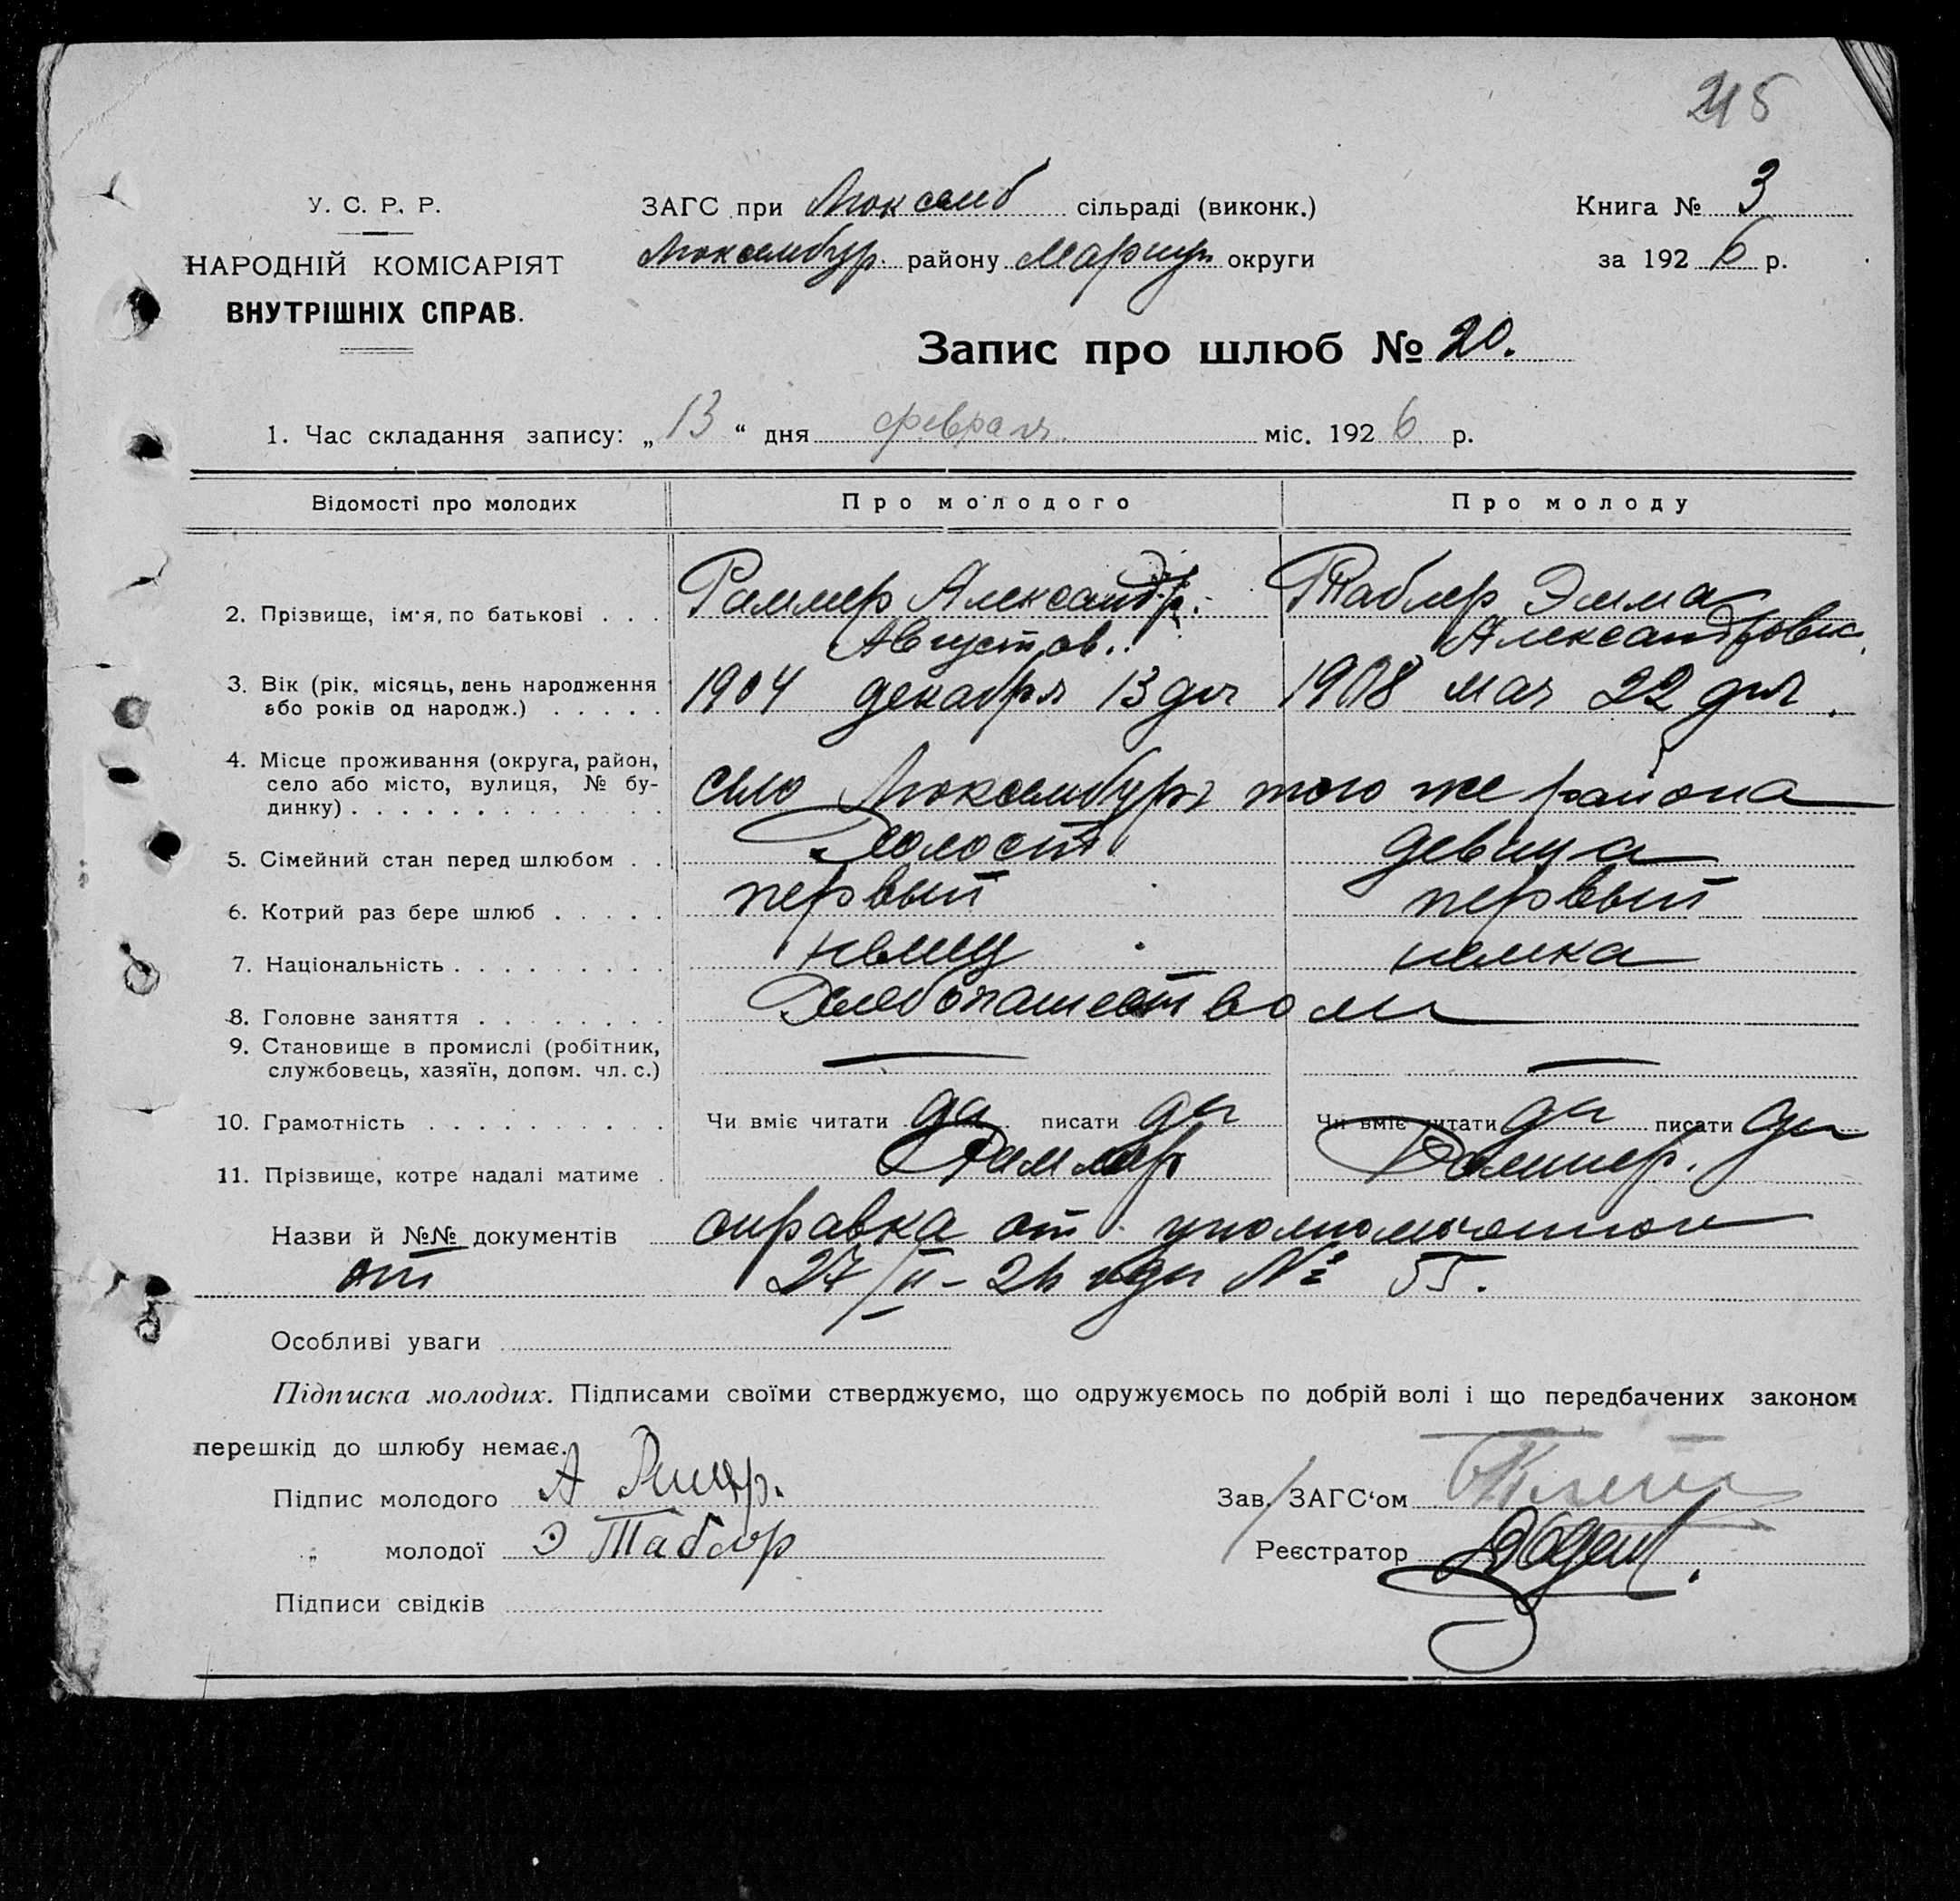 215
У. С. Р. Р.
НАРОДНІЙ КОМІСАРІЯТ
ВНУТРІШНІХ СПРАВ.
ЗАГС при Люксемб сільраді (виконк.)
Люксембур. району Мариуп округи
Книга № 3
за 1926 р.
Запис про шлюб № 20.
1. Час складання запису: „13“ дня февраля міс. 1926 р.
Відомості про молодих Про молодого Про молоду
2. Прізвище, ім'я, по батькові Раммер Александр. Таблер Эмма
Августов. Александровн.
3. Вік (рік, місяць, день народження 1904 декабря 13 дня 1908 мая 22 дня
або років од народж.)
4. Місце проживання (округа, район,
село або місто, вулиця, № бу- село Люксембург того же района
динку)
5. Сімейний стан перед шлюбом Холост девица
6. Котрий раз бере шлюб первый первый
7. Національність немец немка
8. Головне заняття Хлебопашеством
9. Становище в промислі (робітник, — —
службовець, хазяїн, допом. чл. с.)
10. Грамотність Чи вміє читати да писати да Чи вміє читати да писати да
11. Прізвище, котре надалі матиме Раммер Раммер.
Назви й №№ документів справка от
от 27/II – 26 года № 55.
Особливі уваги
Підписка молодих. Підписами своїми стверджуємо, що одружуємось по добрій волі і що передбачених законом
перешкід до шлюбу немає.
Підпис молодого А
Зав. ЗАГС‘ом
„ молодої Э Таблер
Реєстратор
Підписи свідків